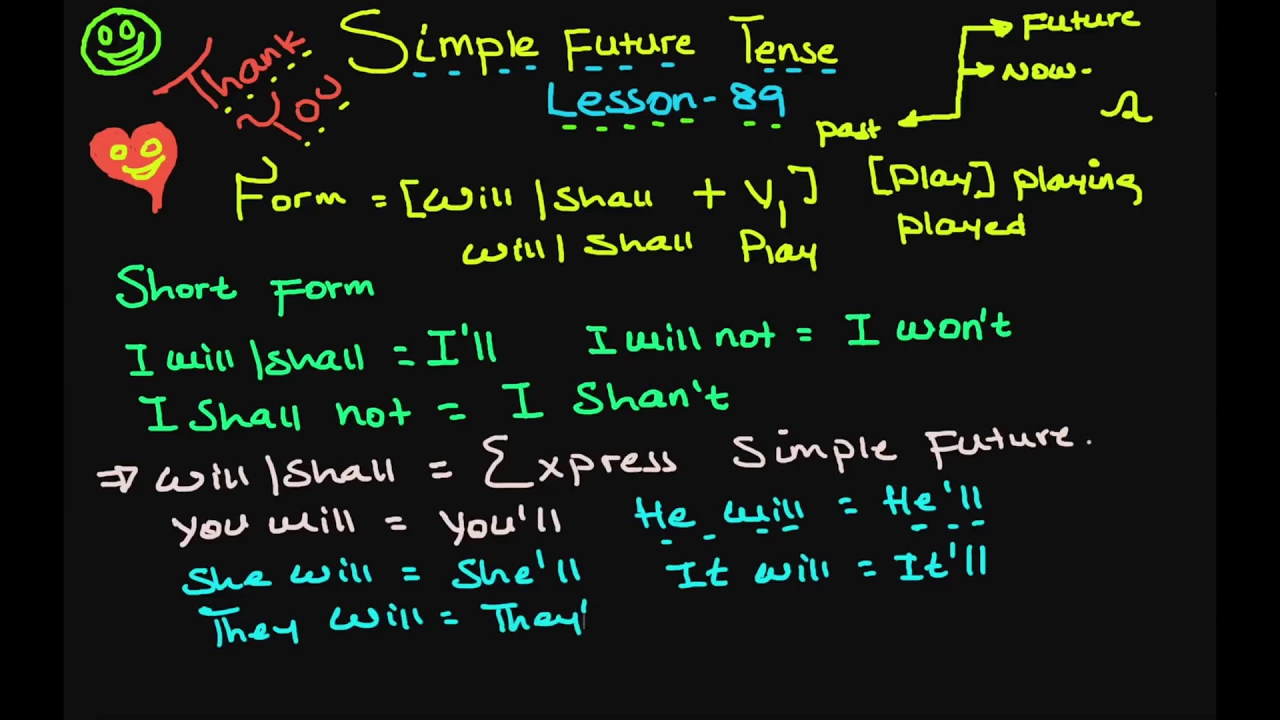 Thank You
Simple Future Tense
Lesson-89
Future
Now-
past
Form = [Will | Shall + V1] [Play] playing
will | Shall Play played
Short Form
I will | shall = I'll I will not = I won't
I Shall not = I Shan't
⇒ Will | Shall = Express Simple Future.
You will = You'll He will = He'll
She will = She'll It will = It'll
They will = They'